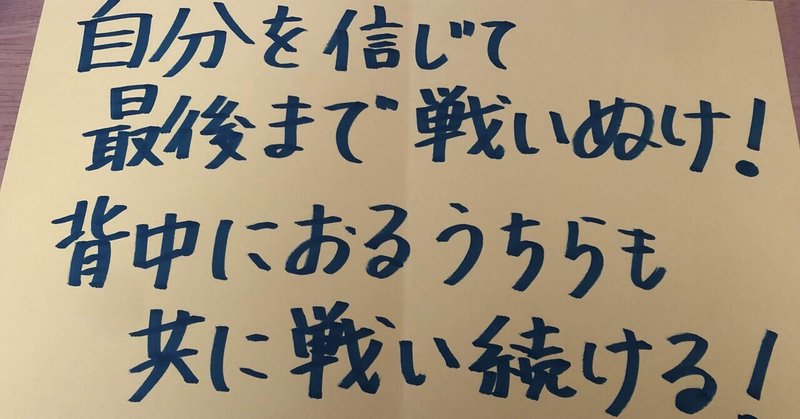 自分を信じて
最後まで戦いぬけ!
背中におるうちらも
共に戦い続ける!